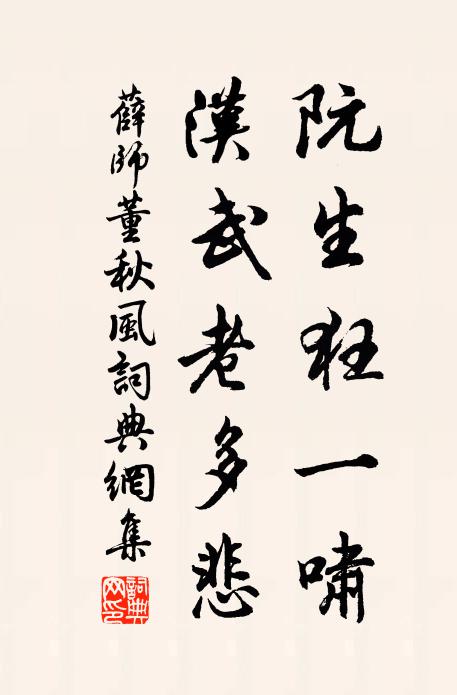 阮生狂一嘯
漢武老多悲
薛師董秋風詞典網集
詞典网印